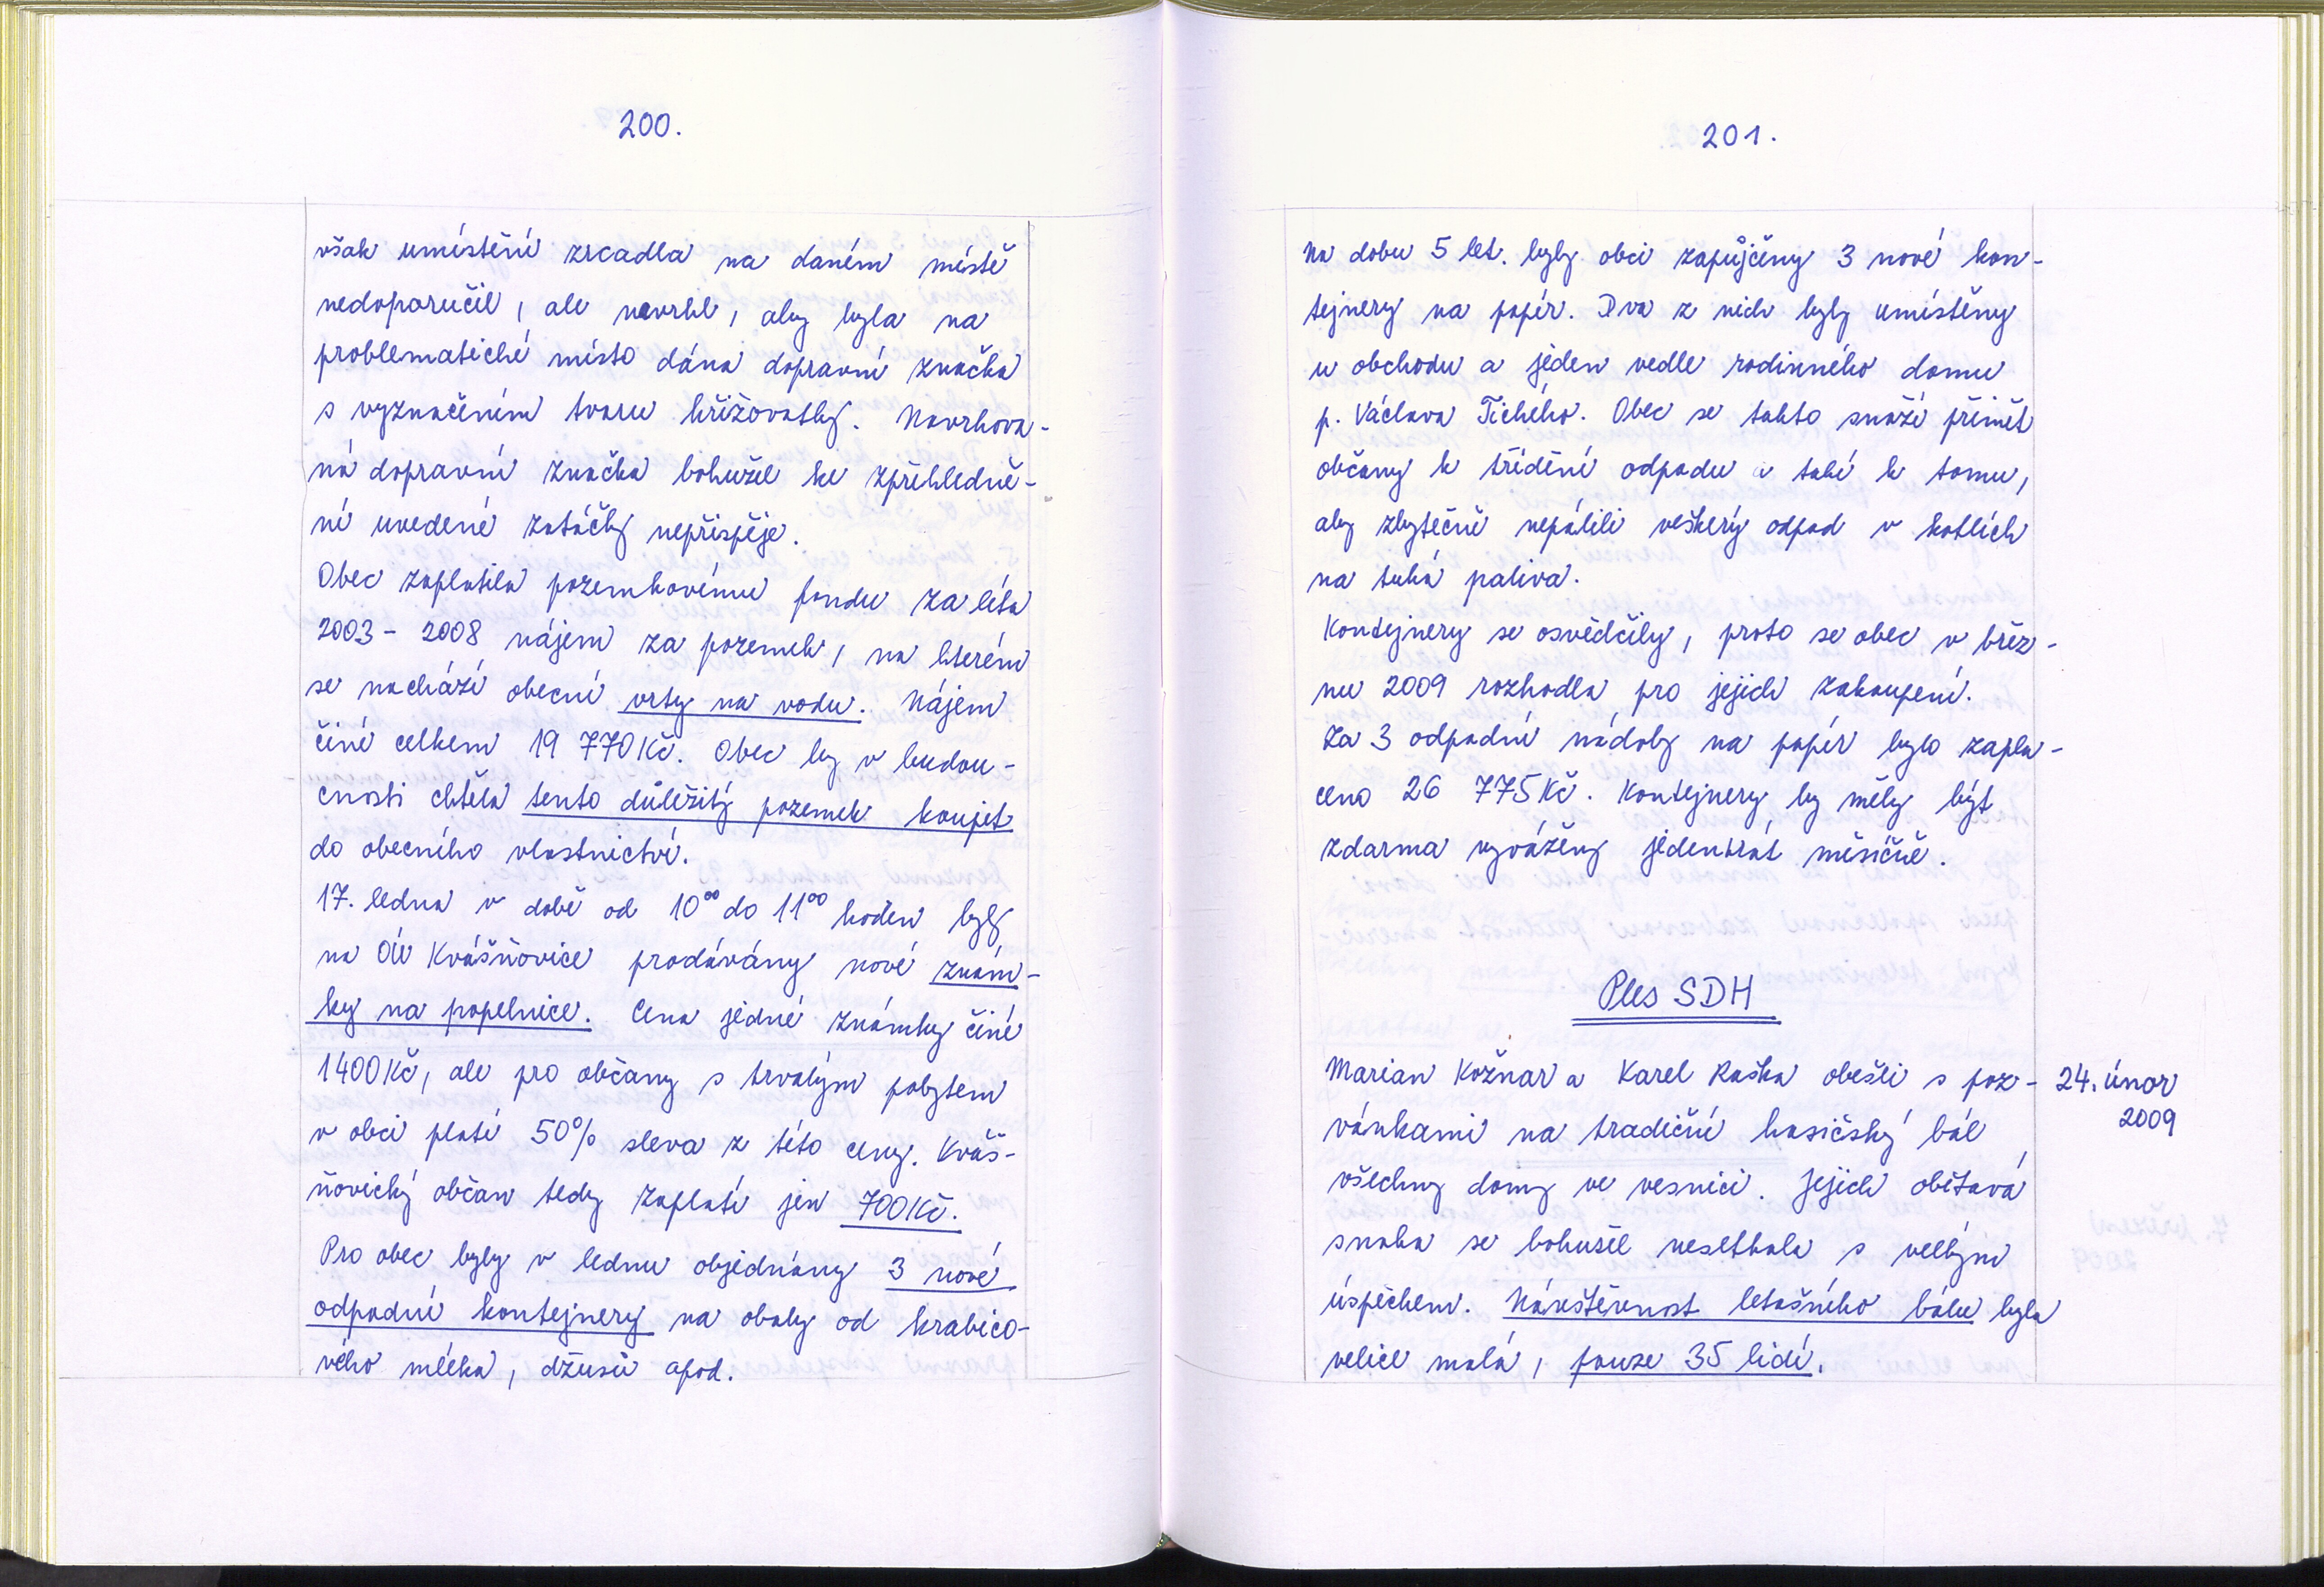 200.
však umístění zrcadla na daném místě
nedoporučil, ale navrhl, aby byla na
problematické místo dána dopravní značka
s vyznačením tvaru křižovatky. Navrhova-
ná dopravní značka bohužel ke zpřehledně-
ní uvedené zatáčky nepřispěje.
Obec zaplatila pozemkovému fondu za léta
2003 - 2008 nájem za pozemek, na kterém
se nachází obecní vrty na vodu. Nájem
činí celkem 19 770 Kč. Obec by v budou-
cnosti chtěla tento důležitý pozemek koupit
do obecního vlastnictví.
17. ledna v době od 10⁰⁰ do 11⁰⁰ hodin byly
na OÚ Kvášňovice prodávány nové znám-
ky na popelnice. Cena jedné známky činí
1400 Kč, ale pro občany s trvalým pobytem
v obci platí 50% sleva z této ceny. Kváš-
ňovický občan tedy zaplatí jen 700 Kč.
Pro obec byly v lednu objednány 3 nové
odpadní kontejnery na obaly od krabico-
vého mléka, džusů apod.
201.
Na dobu 5 let. byly obci zapůjčeny 3 nové kon-
tejnery na papír. Dva z nich byly umístěny
u obchodu a jeden vedle rodinného domu
p. Václava Tichého. Obec se takto snaží přimět
občany k třídění odpadu a také k tomu,
aby zbytečně nepálili veškerý odpad v kotlích
na tuhá paliva.
Kontejnery se osvědčily, proto se obec v břez-
nu 2009 rozhodla pro jejich zakoupení.
Za 3 odpadní nádoby na papír bylo zapla-
ceno 26 775 Kč. Kontejnery by měly být
zdarma vyváženy jedenkrát měsíčně.
Ples SDH
Marian Kožnar a Karel Raška obešli s poz-
24. únor
2009
vánkami na tradiční hasičský bál
všechny domy ve vesnici. Jejich obětavá
snaha se bohužel nesetkala s velkým
úspěchem. Návštěvnost letošního bálu byla
velice malá, pouze 35 lidí.